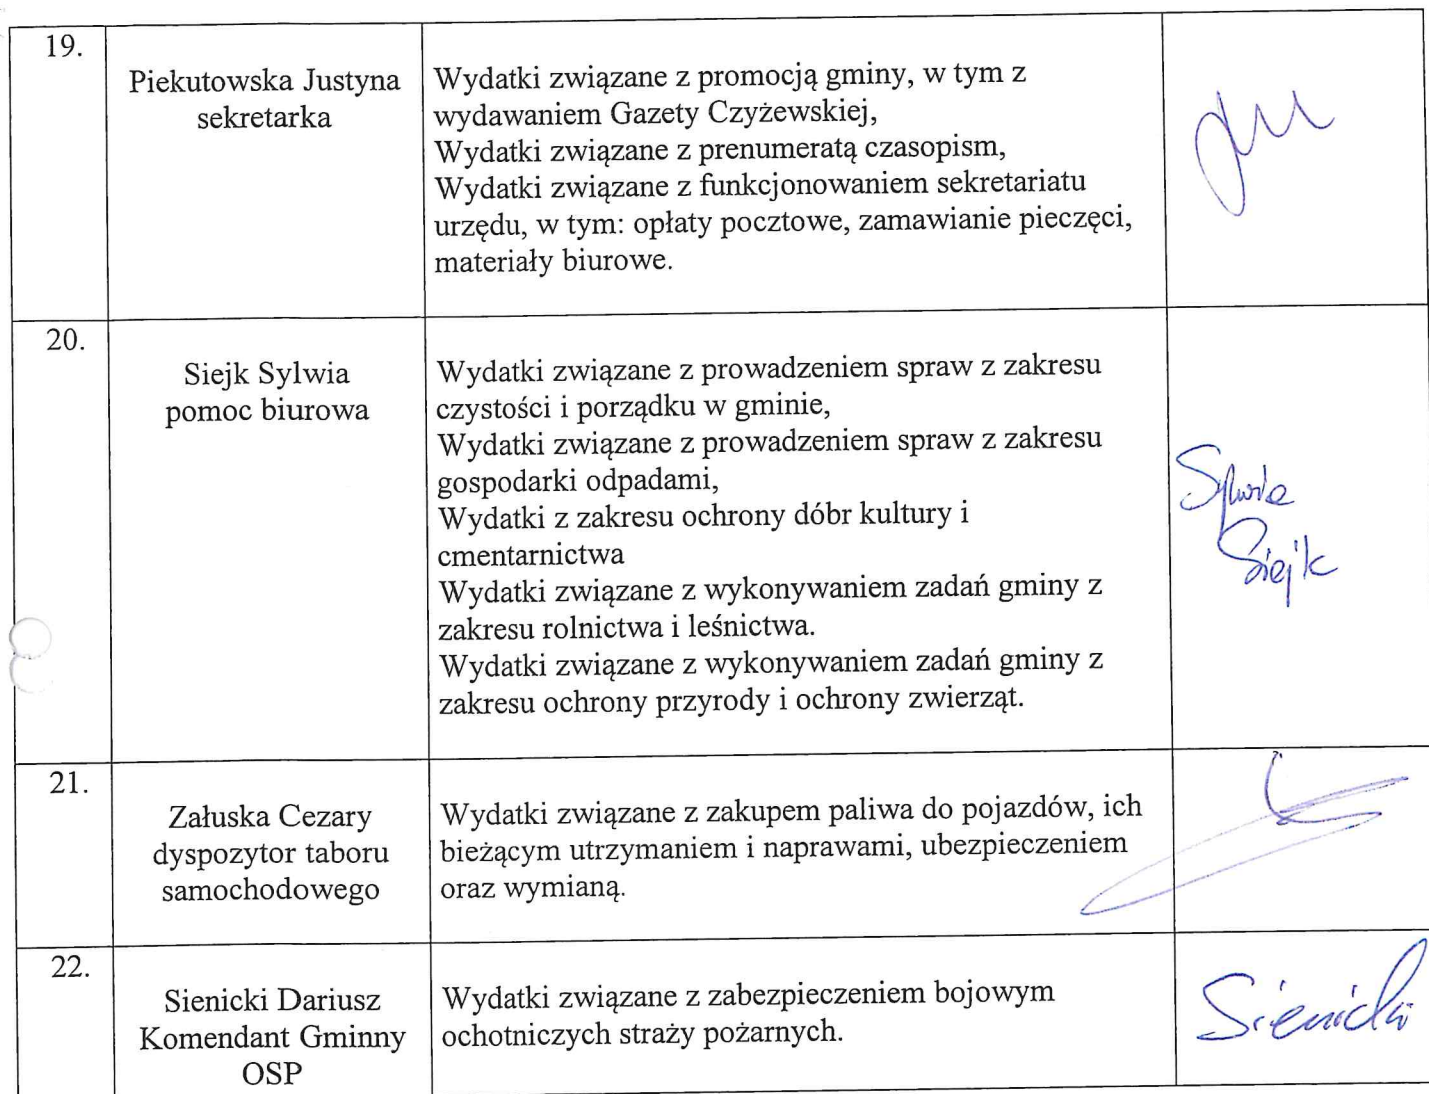 19.
Piekutowska Justyna
sekretarka
Wydatki związane z promocją gminy, w tym z
wydawaniem Gazety Czyżewskiej,
Wydatki związane z prenumeratą czasopism,
Wydatki związane z funkcjonowaniem sekretariatu
urzędu, w tym: opłaty pocztowe, zamawianie pieczęci,
materiały biurowe.
20.
Siejk Sylwia
pomoc biurowa
Wydatki związane z prowadzeniem spraw z zakresu
czystości i porządku w gminie,
Wydatki związane z prowadzeniem spraw z zakresu
gospodarki odpadami,
Wydatki z zakresu ochrony dóbr kultury i
cmentarnictwa
Wydatki związane z wykonywaniem zadań gminy z
zakresu rolnictwa i leśnictwa.
Wydatki związane z wykonywaniem zadań gminy z
zakresu ochrony przyrody i ochrony zwierząt.
Sylwia
Siejk
21.
Załuska Cezary
dyspozytor taboru
samochodowego
Wydatki związane z zakupem paliwa do pojazdów, ich
bieżącym utrzymaniem i naprawami, ubezpieczeniem
oraz wymianą.
22.
Sienicki Dariusz
Komendant Gminny
OSP
Wydatki związane z zabezpieczeniem bojowym
ochotniczych straży pożarnych.
Sienicki